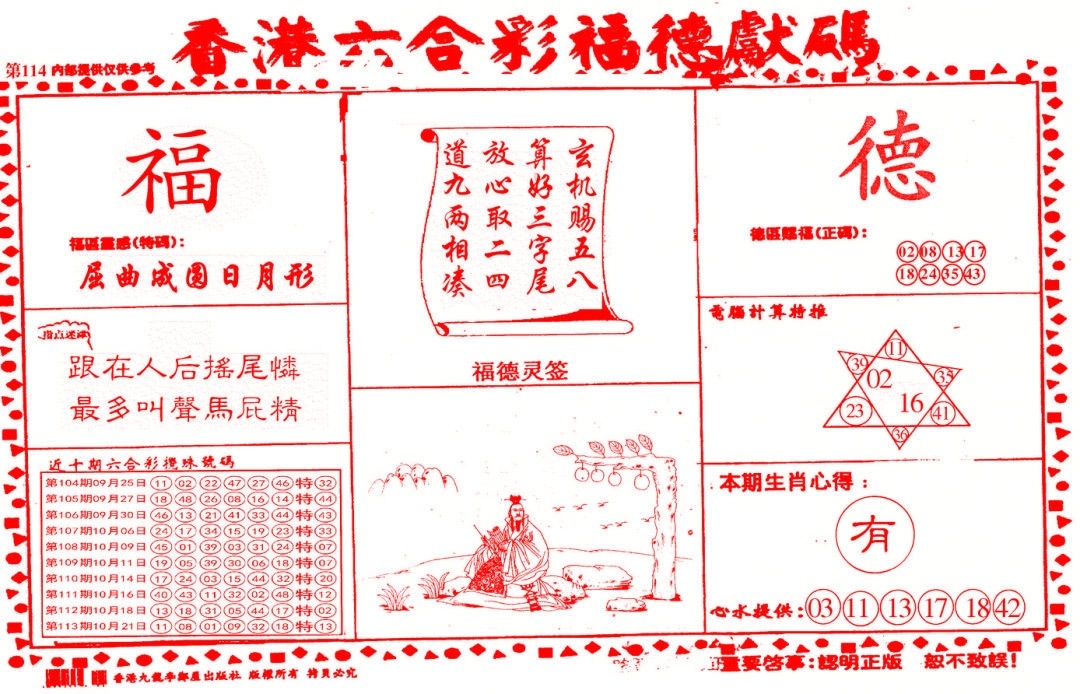 香港六合彩福德獻碼
第114 内部提供仅供参考
福
福區靈感(特碼):
屈曲成圆日月形
指点迷津
跟在人后搖尾憐
最多叫聲馬屁精
近十期六合彩攪珠號碼
第104期09月25日 11 02 22 47 27 46 特 32
第105期09月27日 18 48 26 08 16 14 特 44
第106期09月30日 46 13 21 41 33 44 特 43
第107期10月06日 24 17 34 15 19 23 特 33
第108期10月09日 45 01 39 03 31 24 特 07
第109期10月11日 19 05 39 30 06 18 特 07
第110期10月14日 17 24 03 15 44 32 特 20
第111期10月16日 40 43 11 32 02 48 特 12
第112期10月18日 13 18 31 05 44 17 特 02
第113期10月21日 11 08 01 09 32 18 特 13
玄机赐五八
算好三字尾
放心取二四
道九两相凑
福德灵签
德
德區賜福(正碼):
02 08 13 17
18 24 35 43
電腦計算特推
11
39 35
02
16
23 41
36
本期生肖心得:
有
心水提供: 03 11 13 17 18 42
香港九龍李鄭屋出版社 版權所有 拷貝必究
重要啓事:認明正版 恕不致誤!